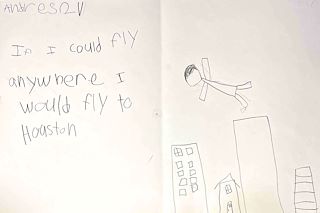 In I could fly
anywhere I
would fly to
Houston